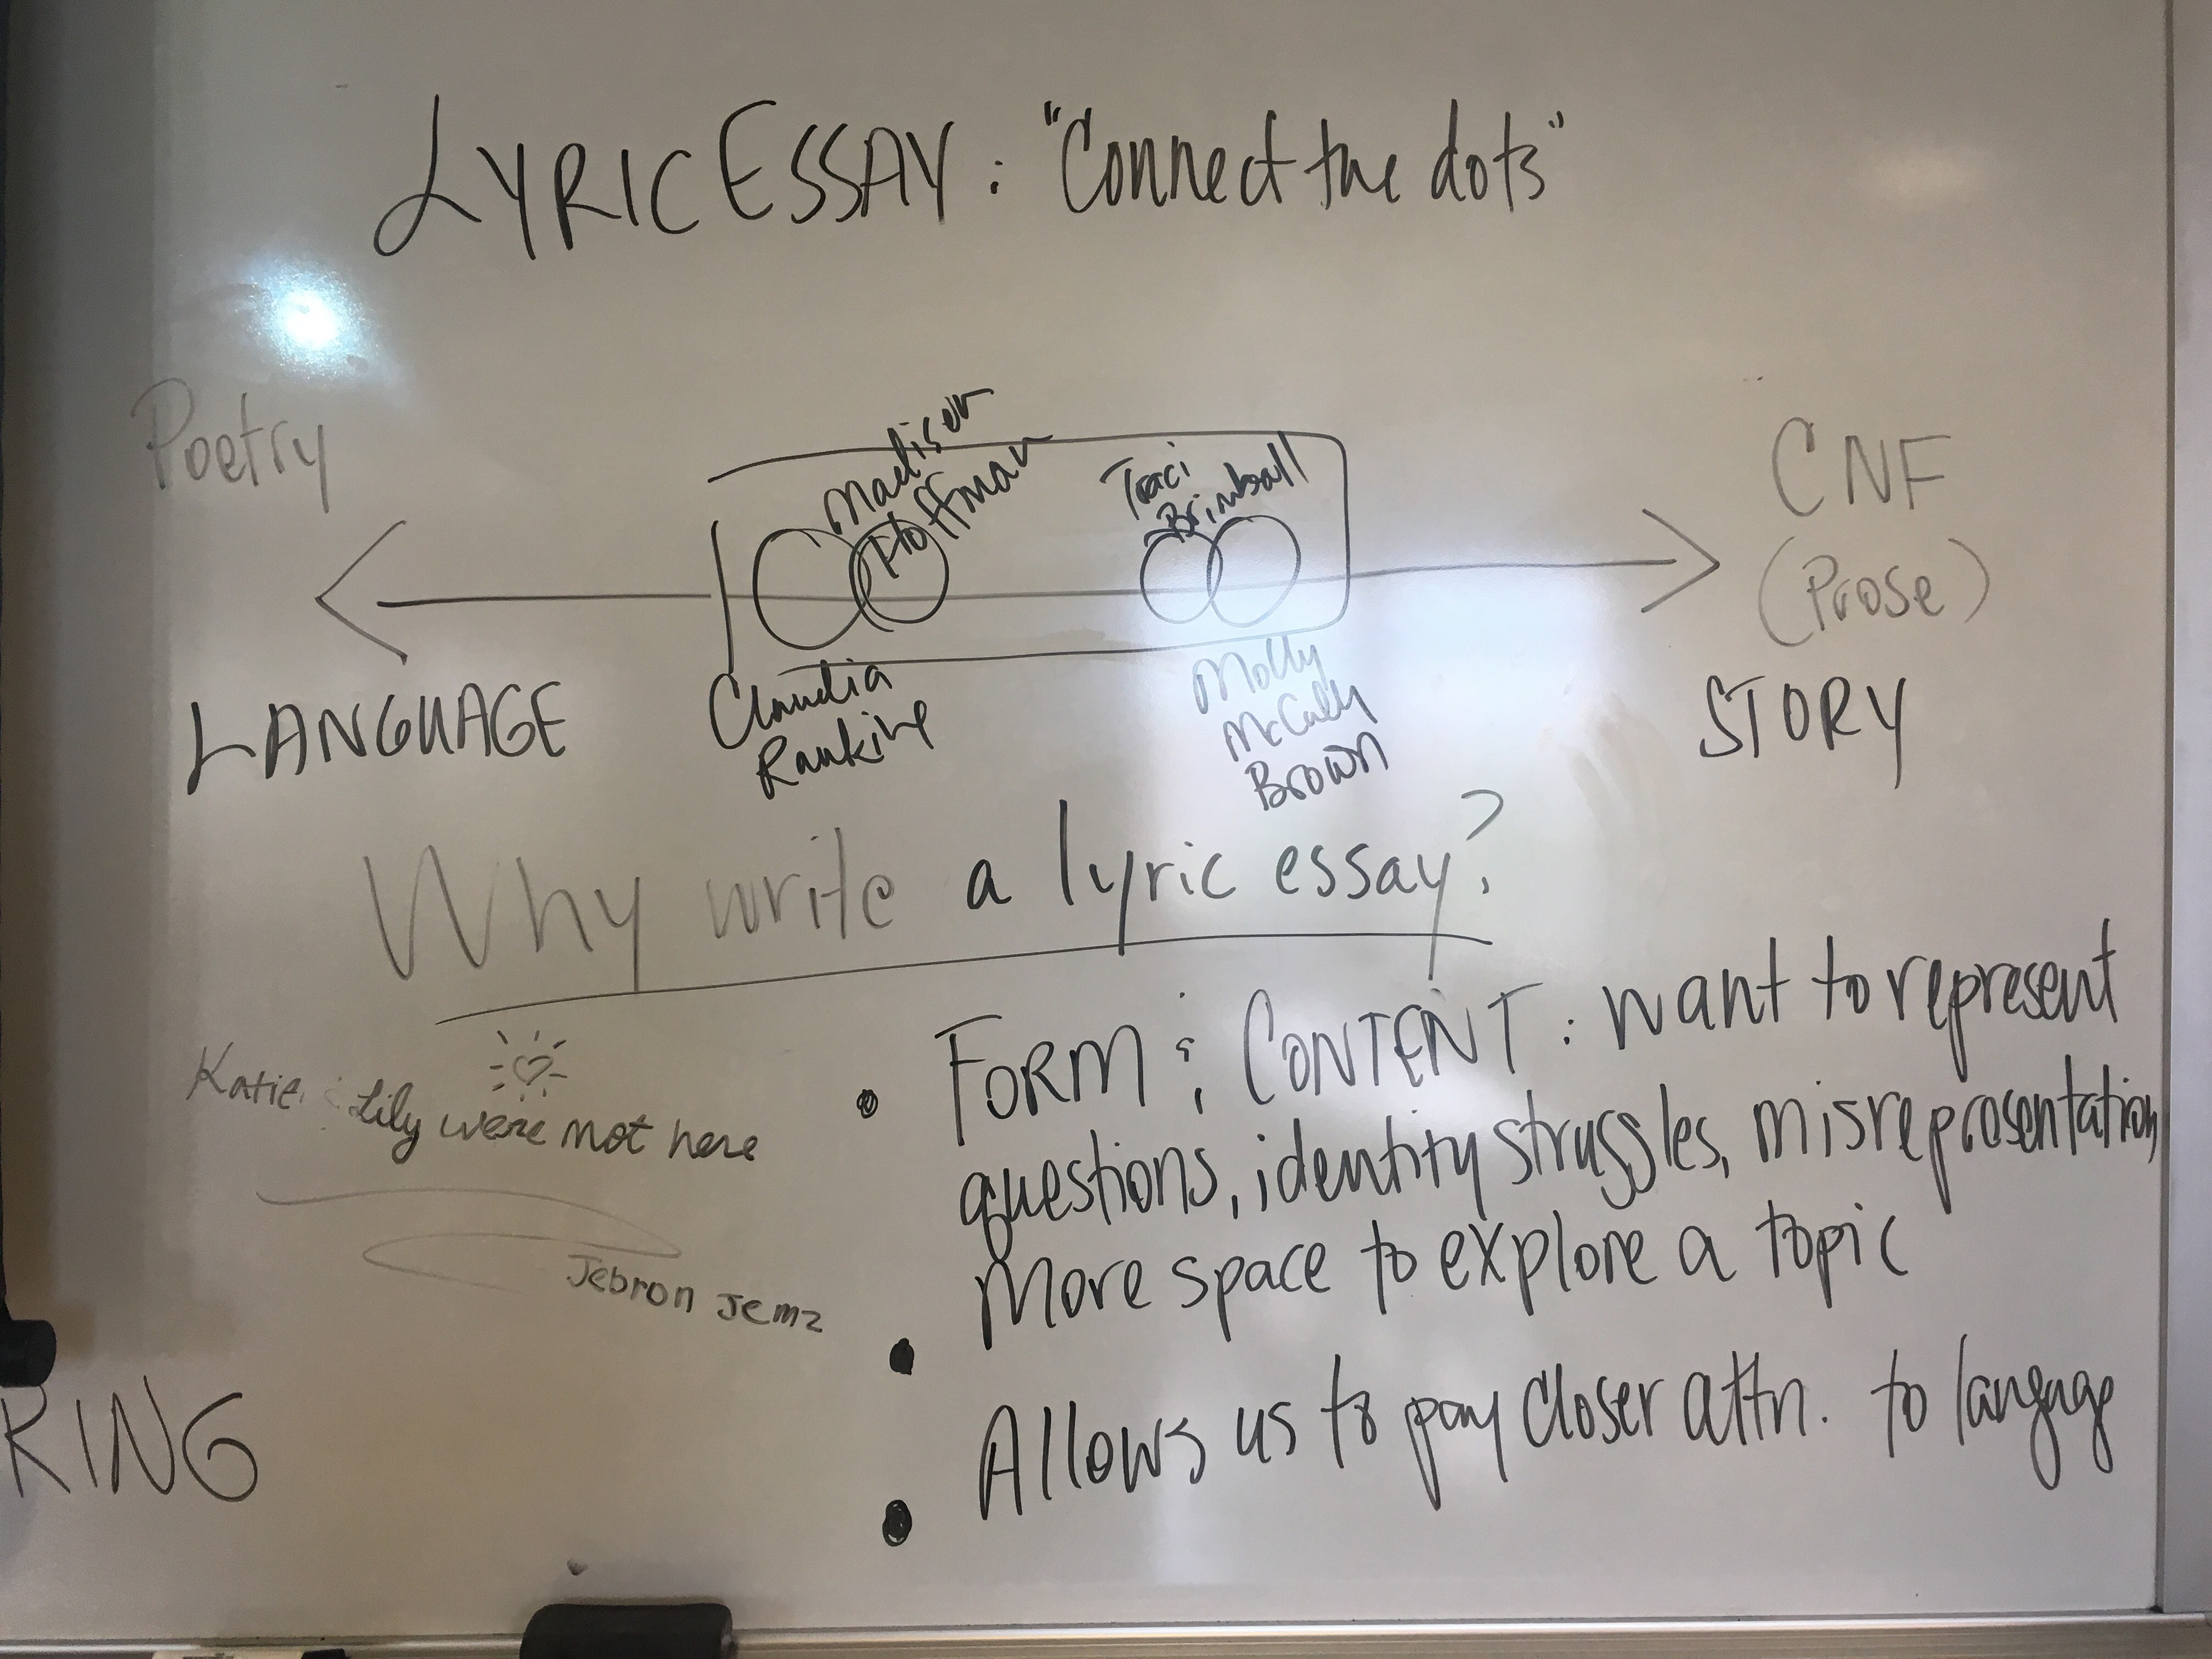 LYRIC ESSAY: "Connect the dots"
Poetry
Madison
Hoffman
Traci
Brimhall
CNF
(Prose)
LANGUAGE
Claudia
Rankine
Molly
McCully
Brown
STORY
Why write a lyric essay?
Katie & Lily were not here
Jebron Jemz
• FORM & CONTENT: want to represent
questions, identity struggles, misrepresentation,
• More space to explore a topic
• Allows us to pay closer attn. to language
KING